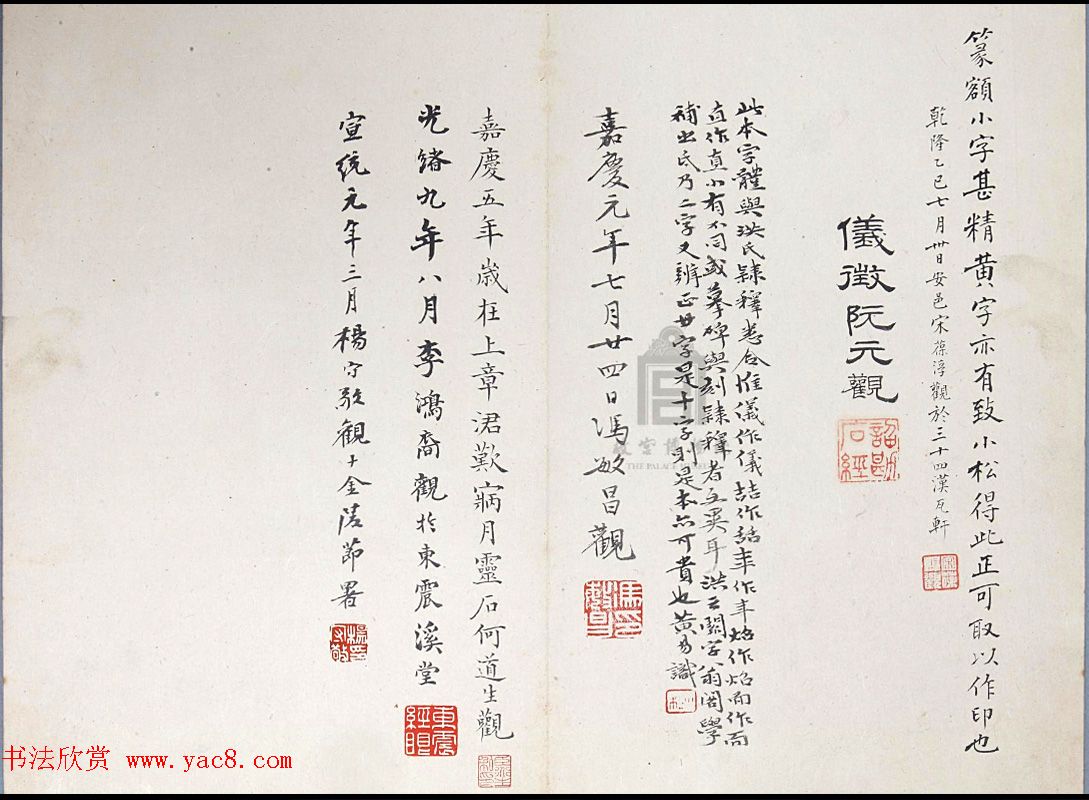 篆額小字甚精黃字亦有致小松得此正可取以作印也
乾隆乙巳七月卅日安邑宋葆淳觀於三十四漢瓦軒
儀徵阮元觀
詔勘石經
此本字體與洪氏隸釋悉合惟儀作儀喆作喆年作年焰作焰而作而
直作直小有不同或摹碑與刻隸釋者互異耳洪云闕字翁閣學
補出氏乃二字又辨正廿字是十字則是本亦可貴也黃易識
嘉慶元年七月廿四日馮敏昌觀
馮敏昌印
嘉慶五年歲在上章涒歎寎月靈石何道生觀
光緒九年八月李鴻裔觀於東震溪堂
宣統元年三月楊守敬觀于金陵節署
楊守敬印
故宮博物院
THE PALACE MUSEUM
书法欣赏 www.yac8.com